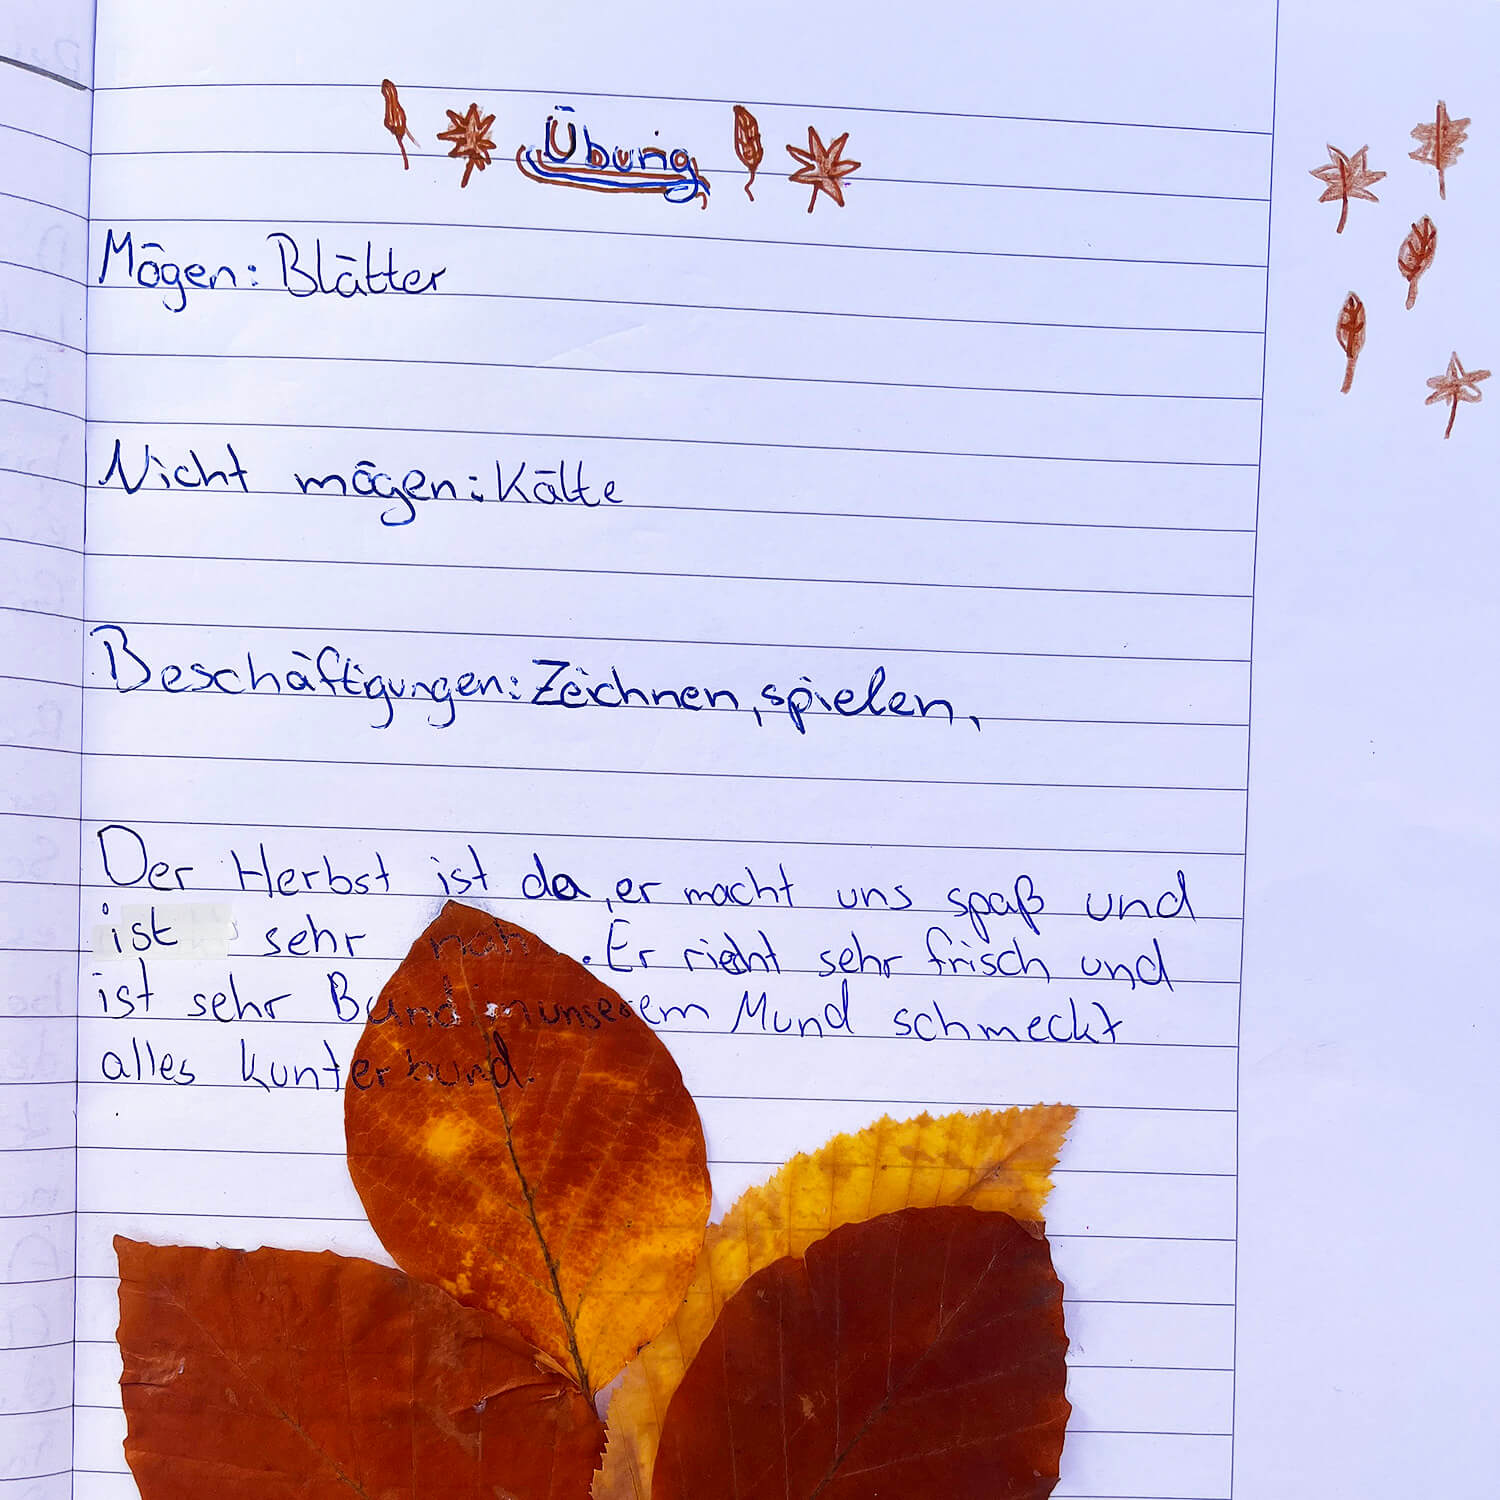 Übung
Mögen: Blätter
Nicht mögen: Kälte
Beschäftigungen: Zeichnen, spielen,
Der Herbst ist da, er macht uns spaß und
ist sehr nah. Er riecht sehr frisch und
ist sehr Bund in unserem Mund schmeckt
alles kunterbund.